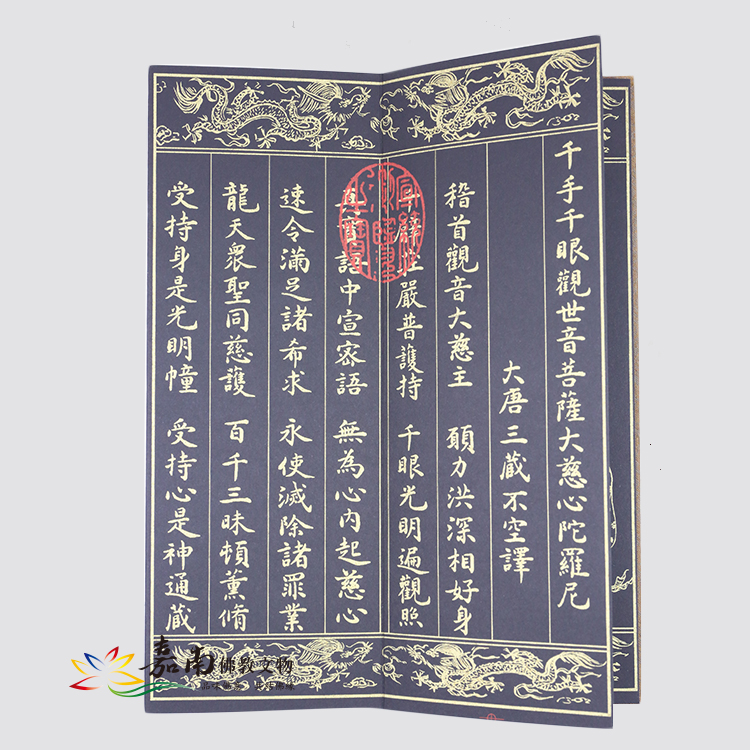 千手千眼觀世音菩薩大慈心陀羅尼
大唐三藏不空譯
稽首觀音大慈主 願力洪深相好身
千臂莊嚴普護持 千眼光明遍觀照
真實語中宣密語 無為心內起慈心
速令滿足諸希求 永使滅除諸罪業
龍天眾聖同慈護 百千三昧頓薰脩
受持身是光明幢 受持心是神通藏
嘉南佛教文物